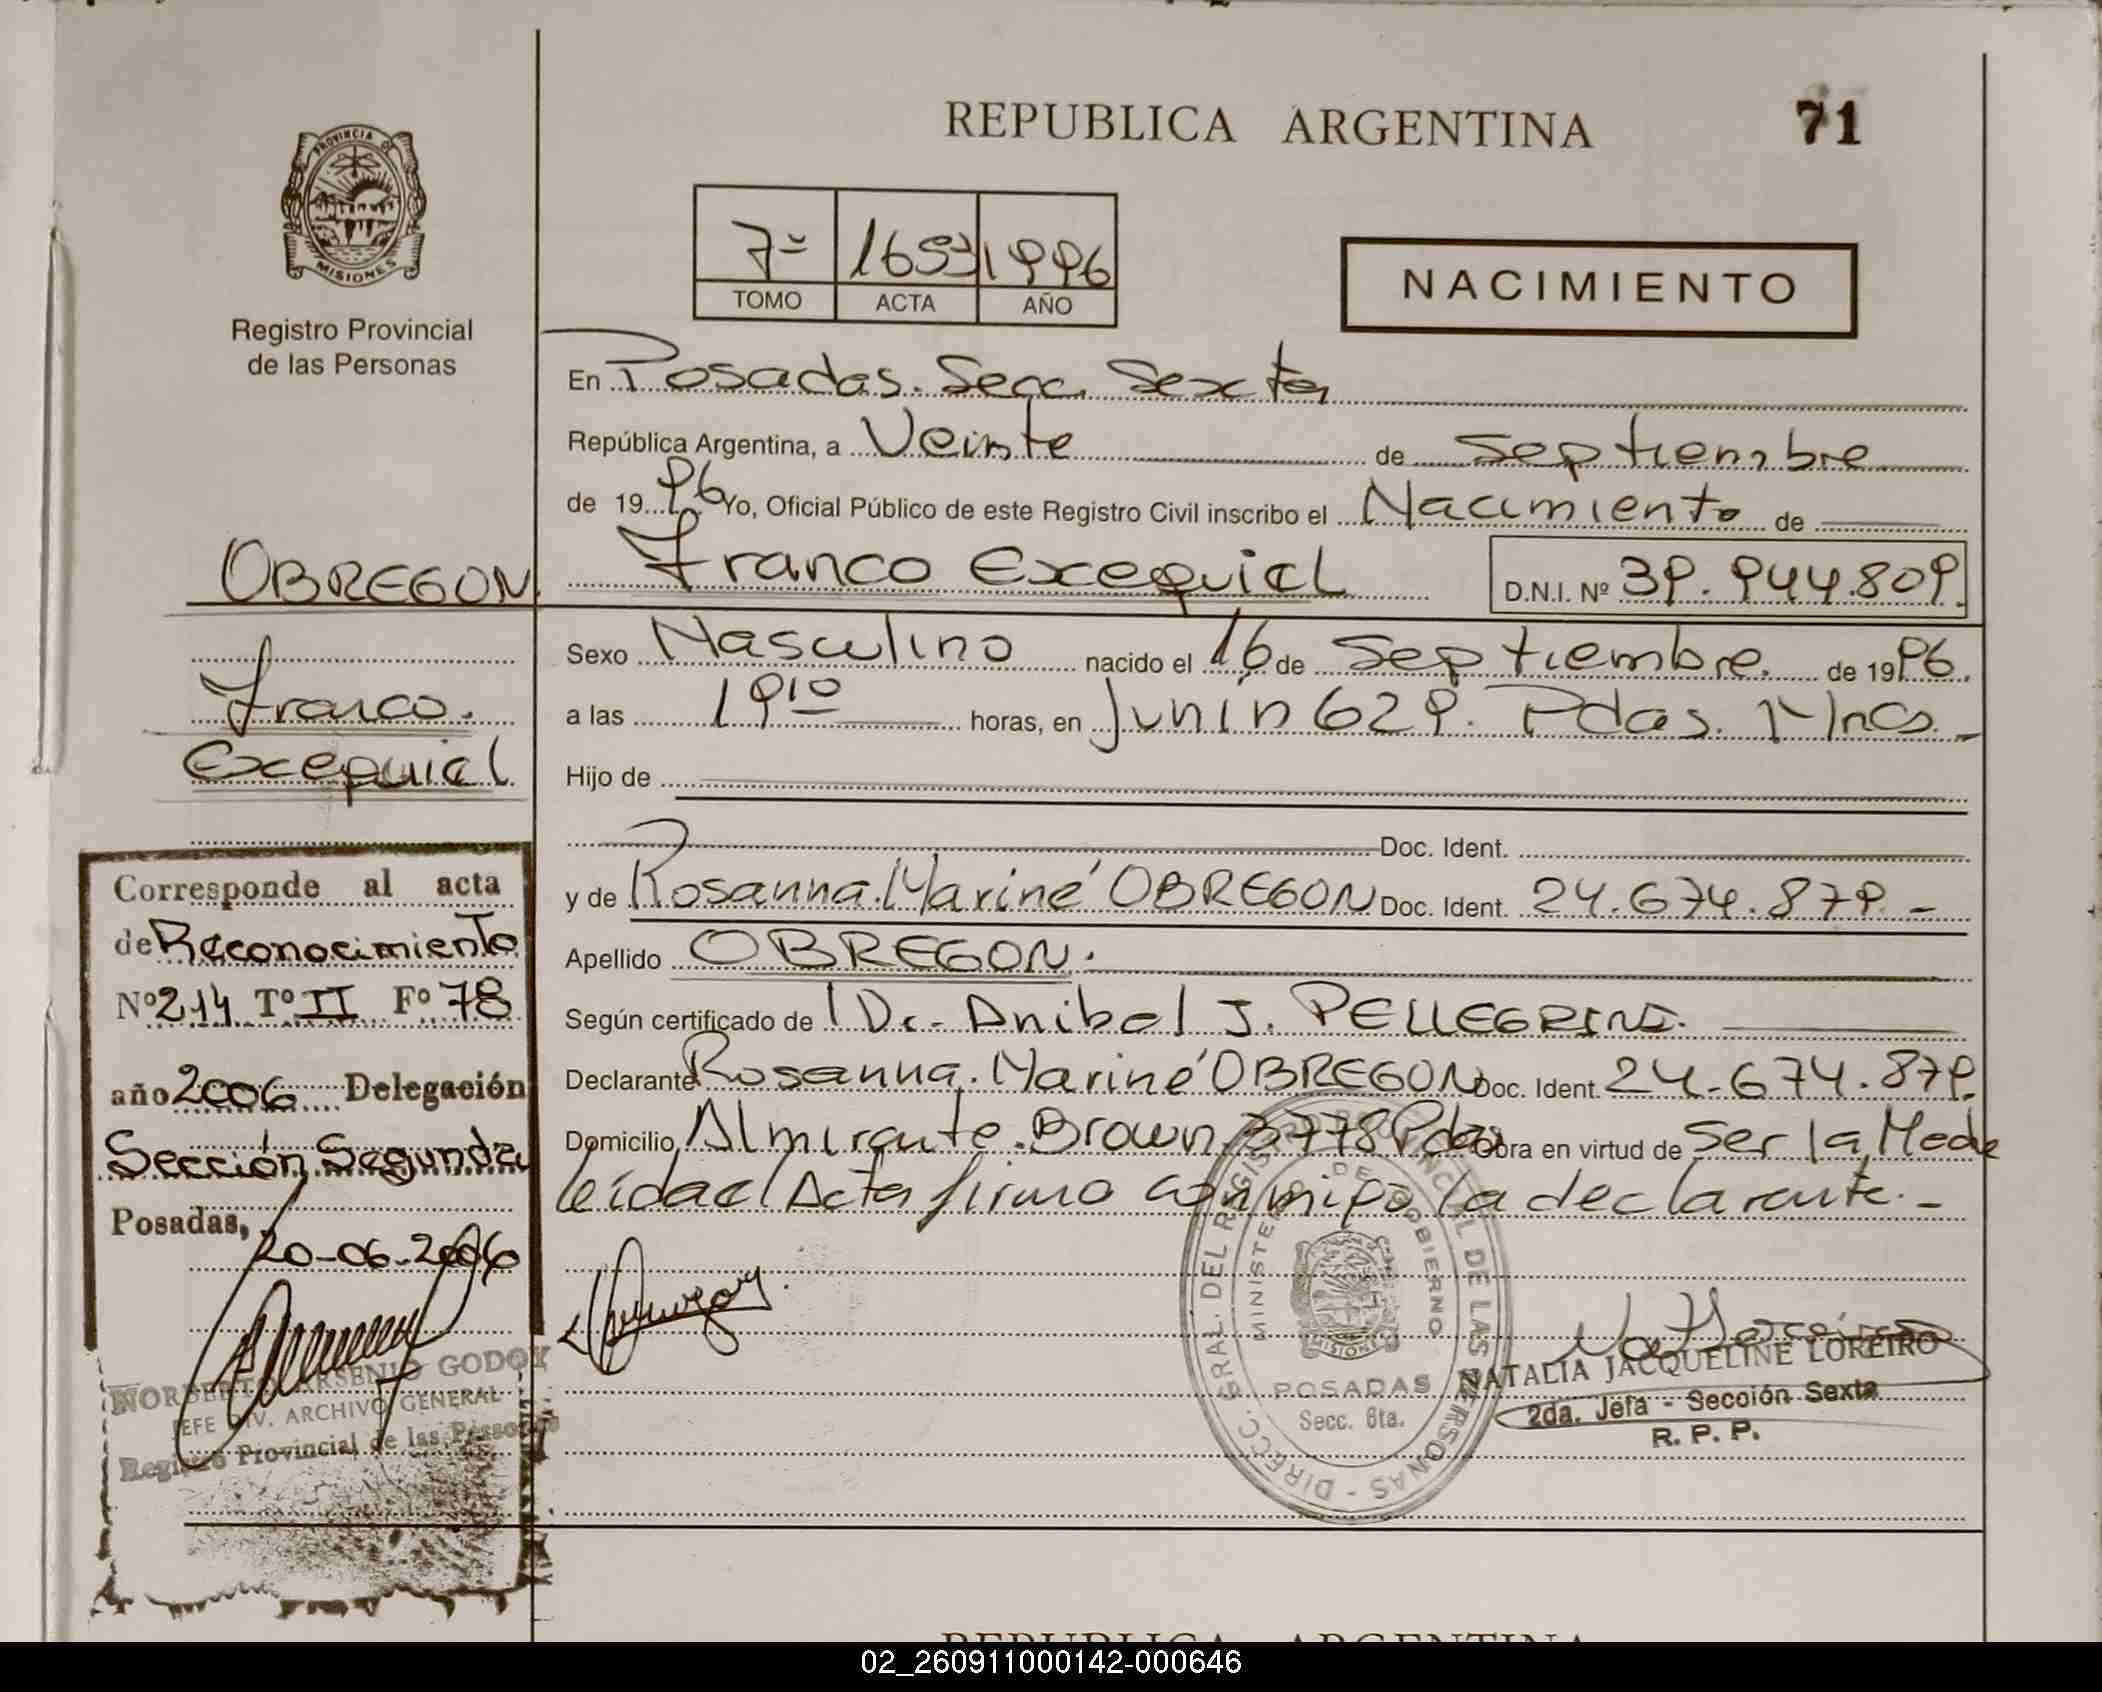 REPUBLICA ARGENTINA
71
PROVINCIA DE
MISIONES
Registro Provincial
de las Personas
7º 1653 1996
TOMO ACTA AÑO
NACIMIENTO
En Posadas. Secc. Sexta
República Argentina, a Veinte de septiembre
de 1996 Yo, Oficial Público de este Registro Civil inscribo el Nacimiento de
Franco Exequiel D.N.I. Nº 39.944.809.
Sexo Masculino nacido el 16 de Septiembre. de 1996.
a las 19 10 horas, en Junín 629. Pdas. Mnes.
Hijo de
Doc. Ident.
y de Rosanna Mariné OBREGON Doc. Ident. 24.674.879.-
Apellido OBREGON.
Según certificado de Dr. Anibal J. PELLEGRINI.
Declarante Rosanna. Mariné OBREGON Doc. Ident. 24.674.879.
Domicilio Almirante Brown 3778 Pdas Obra en virtud de Ser la Madre
leída el Acta firma conmigo la declarante.-
OBREGON
Franco.
Exequiel
Corresponde al acta
de Reconocimiento
Nº 214 Tº II Fº 78
año 2006 Delegación
Sección Segunda
Posadas,
20-06-2006
NORBERTO ARSENIO GODOY
JEFE DIV. ARCHIVO GENERAL
Registro Provincial de las Personas
DIRECC. GRAL. DEL REGISTRO PROVINCIAL DE LAS PERSONAS -
MINISTERIO DE GOBIERNO
MISIONES
POSADAS
Secc. 6ta.
NATALIA JACQUELINE LOREIRO
2da. Jefa - Sección Sexta
R. P. P.
REPUBLICA ARGENTINA
02_260911000142-000646